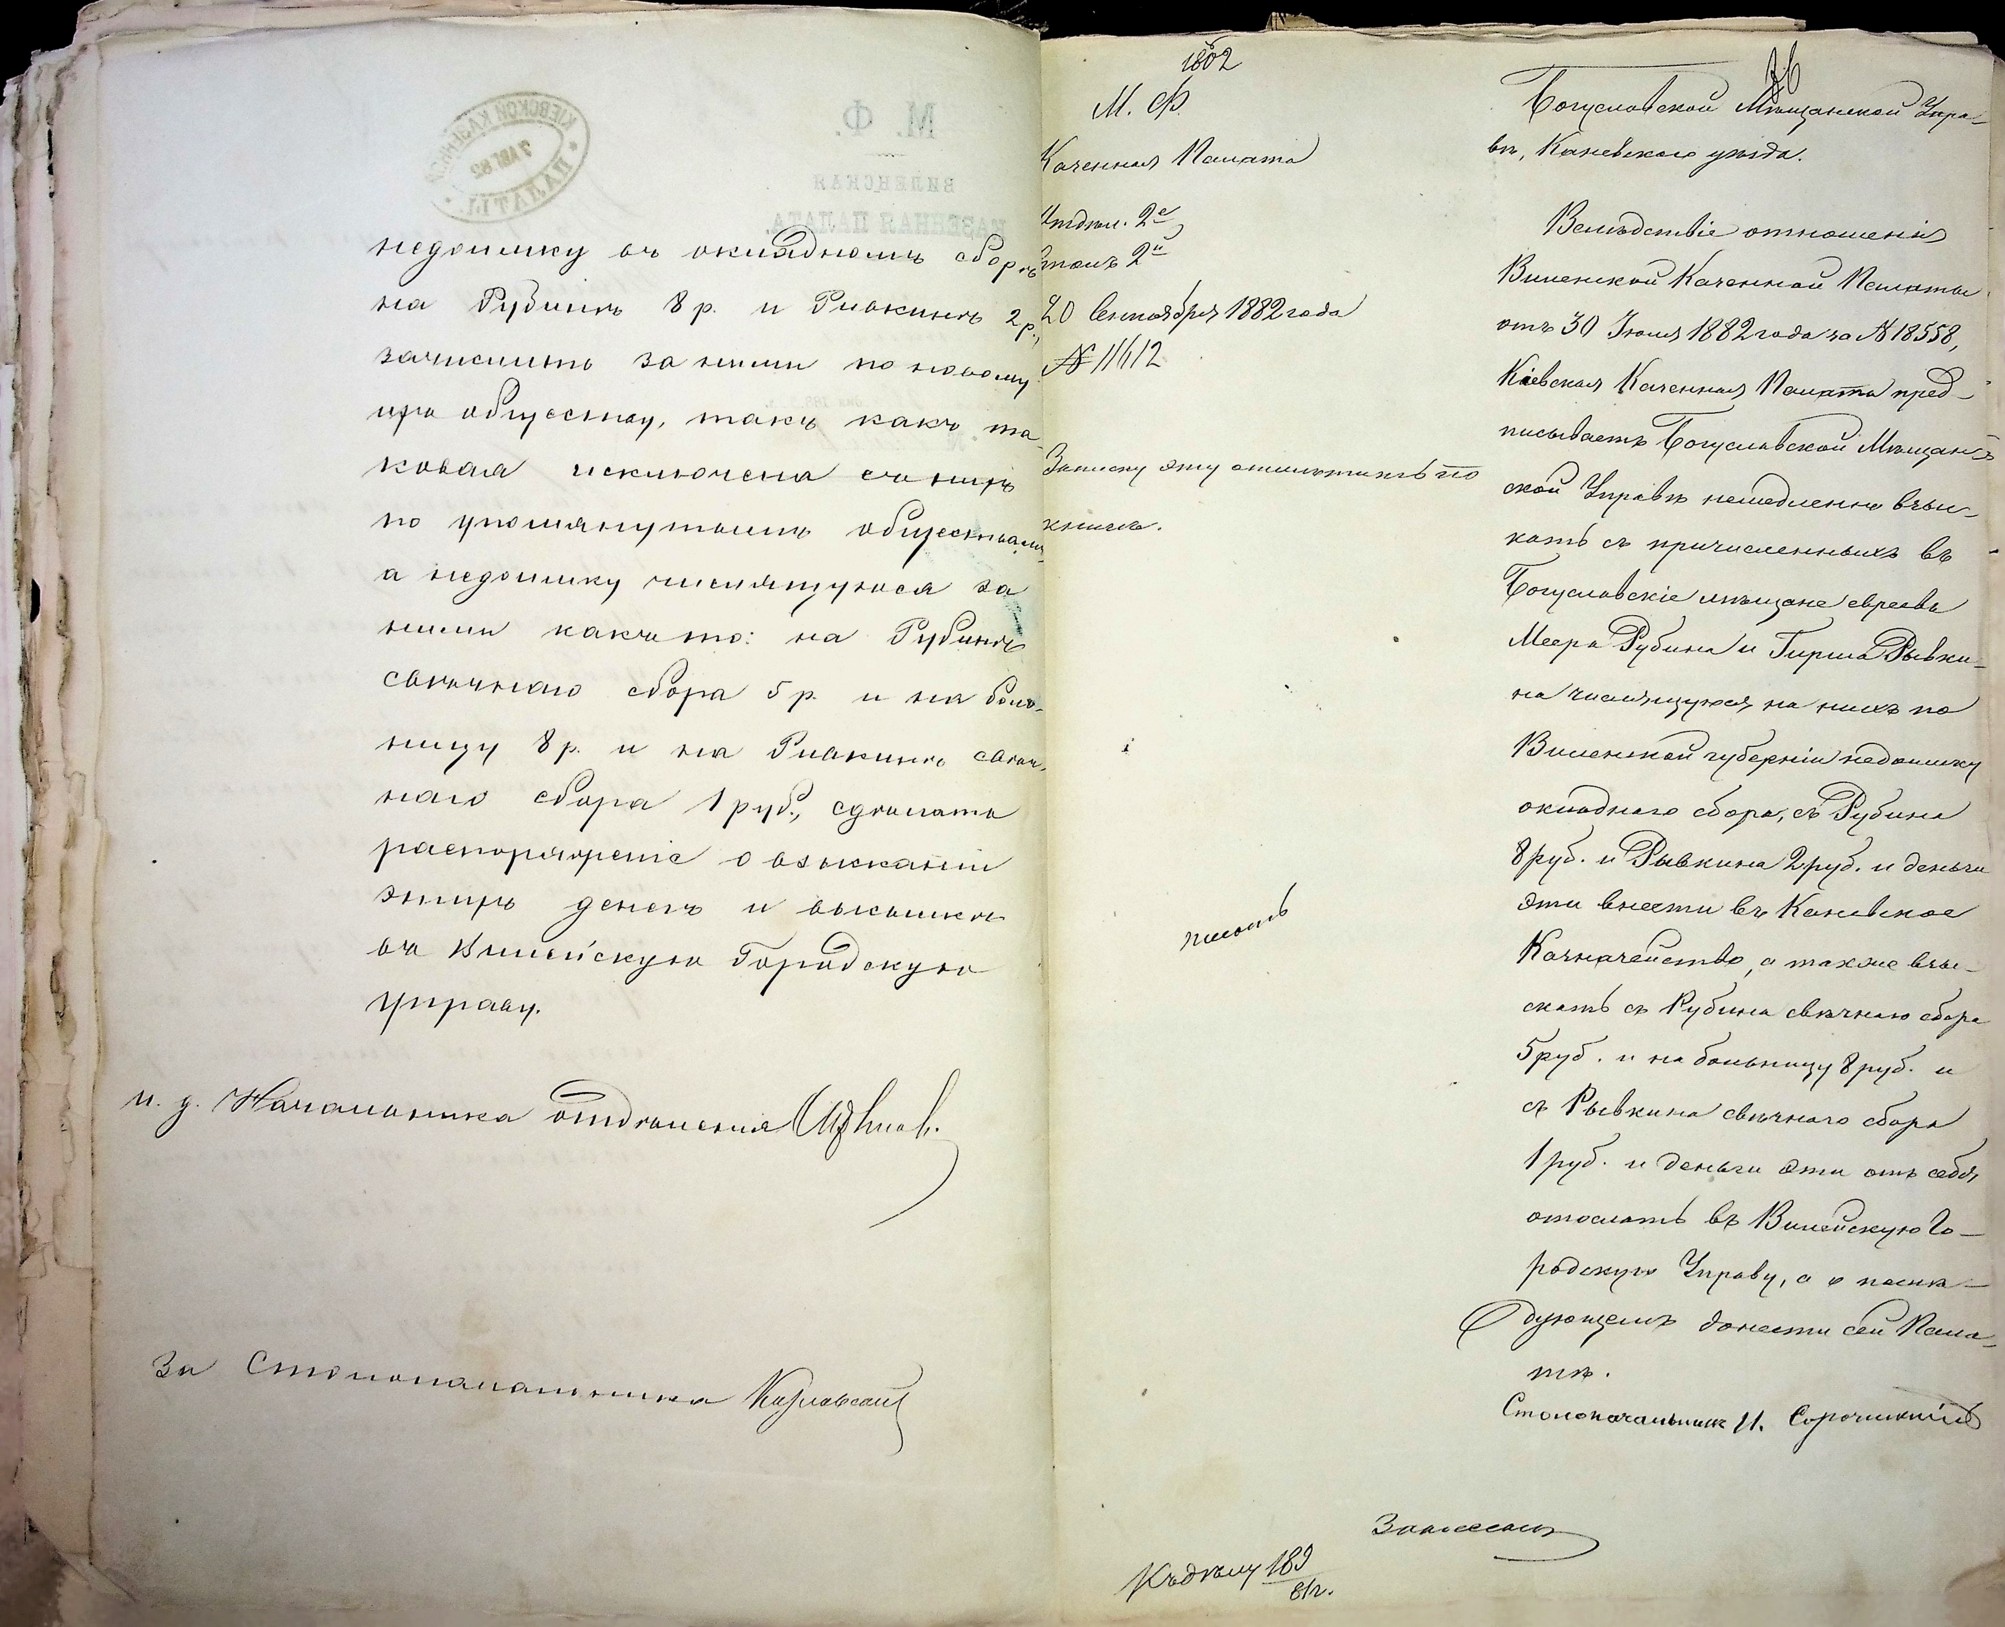 недоимку въ окладномъ сборѣ
на Рубинѣ 8 р. и Ривкинѣ 2 р.,
зачислить за ними по новому
ихъ обществу, такъ какъ та-
ковая исключена съ нихъ
по упомянутымъ обществамъ,
а недоимку числящуюся за
ними какъ то: на Рубинѣ
свѣчнаго сбора 5 р. и на боль-
ницу 8 р. и на Ривкинѣ свѣч-
наго сбора 1 руб., сдѣлать
распоряженіе о взысканіи
этихъ денегъ и высылкѣ
въ Вилейскую Городскую
управу.
И. д. Начальника отдѣленія
За Столоначальника
М. Ф.
Казенная Палата
Отдѣл. 2е
Столъ 2й
20 Сентября 1882 года
№ 11612
Записку эту отмѣтить по
книгѣ.
Къ дѣлу 189
81 г.
Богуславской Мѣщанской Упра-
вѣ, Каневскаго уѣзда.
Вслѣдствіе отношенія
Виленской Казенной Палаты
отъ 30 Іюля 1882 года за № 18558,
Кіевская Казенная Палата пред-
писываетъ Богуславской Мѣщан-
ской Управѣ немедленно взы-
кать съ причисленныхъ въ
Богуславскіе мѣщане евреевъ
Меера Рубина и Гирша Рывки-
на числящуюся на нихъ по
Виленской губерніи недоимку
окладнаго сбора, съ Рубина
8 руб. и Рывкина 2 руб. и деньги
эти внести въ Каневское
Казначейство, а также взы-
скать съ Рубина свѣчнаго сбора
5 руб. и на больницу 8 руб. и
съ Рывкина свѣчнаго сбора
1 руб. и деньги эти отъ себя
отослать въ Вилейскую Го-
родскую Управу, а о послѣ-
дующемъ донести сей Пала-
тѣ.
Столоначальникъ И.